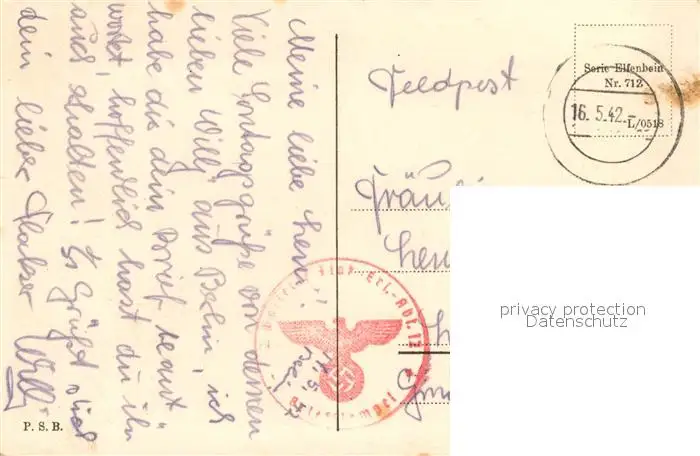 Meine liebe Leni!
Viele Sonntagsgrüße von deinem
lieben Willi aus Berlin, ich
habe dir dein Brief beant-
wortet, hoffentlich hast du ihn
auch erhalten! Es grüßt dich
dein lieber Willi
P. S. B.
Feldpost
Serie Elfenbein
Nr. 712
16. 5. 42.-
L/0518
Fräul
Leni
privacy protection
Datenschutz